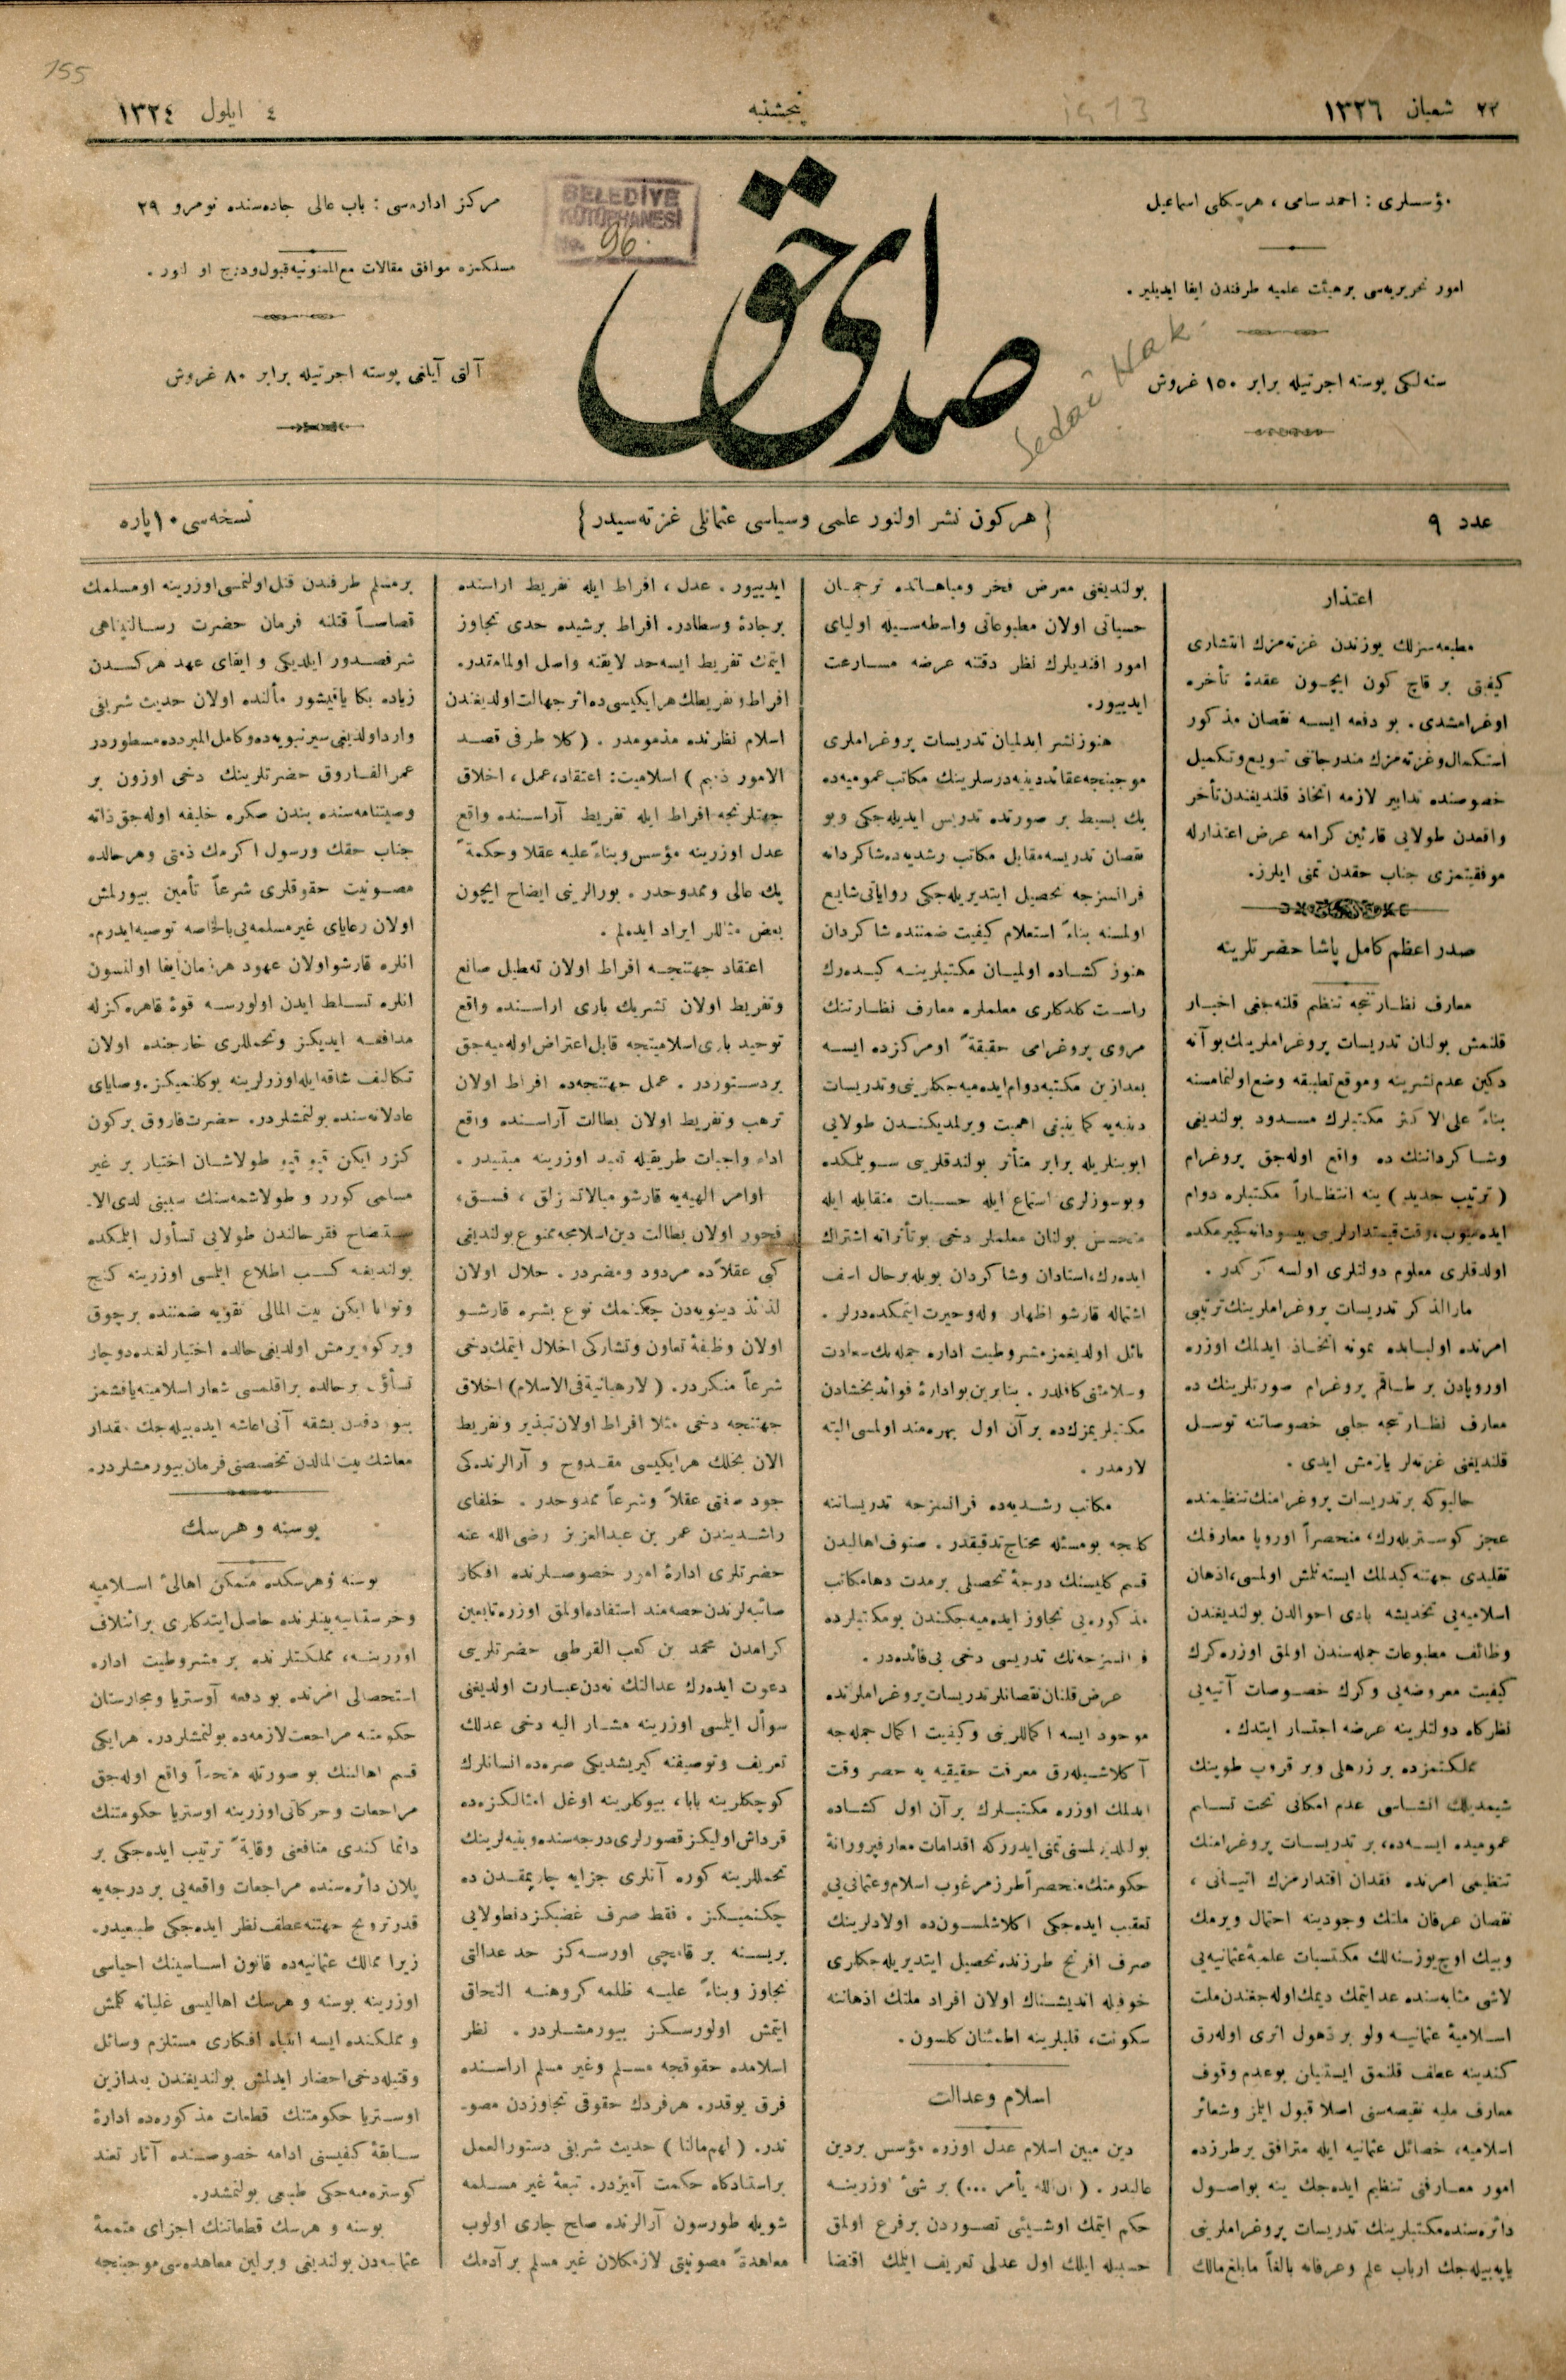 155
٢٢ شعبان ١٣٢٦
پنجشنبه
٤ ايلول ١٣٢٤
1973
مؤسسلرى : احمد سامى ، هرسكلى اسماعيل
امور تحريريه‌سى برهيئت علميه طرفندن ايفا ايديلير .
سنه‌لكى پوسته اجرتيله برابر ١٥٠ غروش
صداى حق
Sedai Hak
BELEDİYE
KÜTÜPHANESİ
No. 96
مركز اداره‌سى : باب عالى جاده‌سنده نومرو ٢٩
مسلكمزه موافق مقالات مع الممنونيه قبول ودرج اولنور .
آلتى آيلغى پوسته اجرتيله برابر ٨٠ غروش
عدد ٩
{ هركون نشر اولنور علمى وسياسى عثمانلى غزته‌سيدر }
نسخه‌سى ١٠ پاره
اعتذار
مطبعه‌سزلك يوزندن غزته‌مزك انتشارى
كيفيتى بر قاچ كون ايچون عقدۀ تأخره
اوغرامشدى . بو دفعه ايسه نقصان مذكور
استكمال وغزته‌مزك مندرجاتى تنويع وتكميل
خصوصنده تدابير لازمه اتخاذ قلنديغندن تأخر
واقعدن طولايى قارئين كرامه عرض اعتذارله
موفقيتمزى جناب حقدن تمنى ايلرز.
صدر اعظم كامل پاشا حضرتلرينه
معارف نظارتنجه تنظيم قلنه‌جغى اخبار
قلنمش بولنان تدريسات پروغراملرينك بو آنه
دكين عدم نشرينه وموقع تطبيقه وضع اولنمامسنه
بناءً على الاكثر مكتبلرك مسدود بولنديغى
وشاكرداننك ده واقع اوله‌جق پروغرام
( ترتيب جديد ) ينه انتظاراً مكتبلره دوام
ايده‌ميوب، وقت قيمتدارلرينى بيهوده كچيرمكده
اولدقلرى معلوم دولتلرى اولسه كركدر .
مار الذكر تدريسات پروغراملرينك ترتيبى
امرنده اولبابده نمونه اتخاذ ايدلمك اوزره
اوروپادن بر طاقم پروغرام صورتلرينك ده
معارف نظارتنجه جلبى خصوصاتنه توسل
قلنديغى غزته‌لر يازمش ايدى .
حالبوكه بر تدريسات پروغرامنك تنظيمنده
عجز كوستريله‌رك، منحصراً اوروپا معارفك
تقليدى جهتنه كيدلمك ايسته‌نلمش اولمسى، اذهان
اسلاميه‌يى تخديشه بادى احوالدن بولنديغندن
وظائف مطبوعات جمله‌سندن اولمق اوزره كرك
كيفيت معروضه‌يى وكرك خصوصات آتيه‌يى
نظركاه دولتلرينه عرضه اجتسار ايتدك .
مملكتمزده بر زرهلى وبر قروپ طوپنك
شيمديلك انشاسى عدم امكانى تحت تسليم
عموميده ايسه‌ده، بر تدريسات پروغرامنك
تنظيمى امرنده فقدان اقتدارمزك اثباتى ،
نقصان عرفان ملتك وجودينه احتمال ويرمك
وبيك اوچ يوز سنه‌لك مكتسبات علميۀ عثمانيه‌يى
لاشى مثابه‌سنده عد ايتمك ديمك اوله‌جغندن ملت
اسلاميۀ عثمانيه ولو بر ذهول اثرى اوله‌رق
كندينه عطف قلنمق ايستيان بو عدم وقوف
معارف مليه نقيصه‌سنى اصلا قبول ايلمز وشعائر
اسلاميه، خصائل عثمانيه ايله مترافق بر طرزده
امور معارفنى تنظيم ايده‌جك ينه بو اصول
دائره‌سنده مكتبلرينك تدريسات پروغراملرينى
ياپه‌بيله‌جك ارباب علم وعرفانه بالغاً مابلغ مالك
بولنديغنى معرض فخر ومباهاتده ترجمان
حسياتى اولان مطبوعاتى واسطه‌سيله اولياى
امور افنديلرك نظر دقتنه عرضه مسارعت
ايدييور.
هنوز نشر ايدلميان تدريسات پروغراملرى
موجبنجه عقائد دينيه درسلرينك مكاتب عموميه‌ده
پك بسيط بر صورتده تدريس ايديله‌جكى وبو
نقصان تدريسه مقابل مكاتب رشديه‌ده شاكردانه
فرانسزجه تحصيل ايتديريله‌جكى رواياتى شايع
اولمسنه بناءً استعلام كيفيت ضمننده شاكردان
هنوز كشاده اولميان مكتبلرينه كيده‌رك
راست كلدكلرى معلملره معارف نظارتنك
مروى پروغرامى حقيقةً او مركزده ايسه
بعدازين مكتبه دوام ايده‌ميه‌جكلرينى وتدريسات
دينيه‌يه كما ينبغى اهميت ويرلمديكندن طولايى
ابوينلريله برابر متأثر بولندقلرينى سويلمكده
وبو سوزلرى استماع ايله حسيات متقابله ايله
متحسس بولنان معلملر دخى بو تأثراته اشتراك
ايده‌رك، استادان وشاكردان بويله بر حال اسف
اشتماله قارشو اظهار وله وحيرت ايتمكده‌درلر .
نائل اولديغمز مشروطيت اداره جمله‌نك سعادت
وسلامتنى كافلدر . بنابرين بو ادارۀ فوائد بخشادن
مكتبلريمزك ده بر آن اول بهره‌مند اولمسى البته
لازمدر .
مكاتب رشديه‌ده فرانسزجه تدريساتنه
كلنجه بو مسئله محتاج تدقيقدر . صنوف اهاليدن
قسم كليسنك درجۀ تحصيلى بر مدت دها مكاتب
مذكوره‌يى تجاوز ايده‌ميه‌جكندن بو مكتبلرده
فرانسزجه‌نك تدريسى دخى بى فائده‌در .
عرض قلنان نقصانلر تدريسات پروغراملرنده
موجود ايسه اكمالرينى وكيفيت اكمال جمله‌جه
آكلاشيله‌رق معرفت حقيقيه يه حصر وقت
ايدلمك اوزره مكتبلرك بر آن اول كشاده
بولندرلمسنى تمنى ايدرزكه اقدامات معارفپرورانۀ
حكومتك منحصراً طرز مرغوب اسلام وعثمانى‌يى
تعقيب ايده‌جكى اكلاشلسون‌ده اولادلرينك
صرف افرنج طرزنده تحصيل ايتديريله‌جكلرى
خوفيله انديشناك اولان افراد ملتك اذهاننه
سكونت، قلبلرينه اطمئنان كلسون .
اسلام وعدالت
دين مبين اسلام عدل اوزره مؤسس بر دين
عاليدر . ( ان الله يأمر ... ) بر شئ اوزرينه
حكم ايتمك اوشيئى تصوردن بر فرع اولمق
حسبيله ايلك اول عدلى تعريف ايلمك اقتضا
ايدييور . عدل ، افراط ايله تفريط اراسنده
بر جادۀ وسطادر. افراط بر شيده حدى تجاوز
ايتمك تفريط ايسه حد لايقنه واصل اولمامقدر.
افراط وتفريطك هر ايكيسى ده اثر جهالت اولديغندن
اسلام نظرنده مذمومدر . (كلا طرفى قصد
الامور ذميم ) اسلاميت: اعتقاد، عمل ، اخلاق
جهتلرنجه افراط ايله تفريط آراسنده واقع
عدل اوزرينه مؤسس وبناءً عليه عقلاً وحكمةً
پك عالى وممدوحدر . بورالرينى ايضاح ايچون
بعض مثاللر ايراد ايده‌لم .
اعتقاد جهتنجه افراط اولان تعطيل صانع
وتفريط اولان تشريك بارى اراسنده واقع
توحيد بارى اسلاميتجه قابل اعتراض اوله‌ميه‌جق
بر دستوردر . عمل جهتنجه‌ده افراط اولان
ترهب وتفريط اولان بطالت آراسنده واقع
اداء واجبات طريقيله تعبد اوزرينه مبتنيدر .
اوامر الهيه‌يه قارشو مبالاتسزلق ، فسق،
فجور اولان بطالت دين اسلامجه ممنوع بولنديغى
كبى عقلاً ده مردود ومضردر . حلال اولان
لذائذ دنيويه‌دن چكنمك نوع بشره قارشو
اولان وظيفۀ تعاون وتشاركى اخلال ايتمك دخى
شرعاً منكردر. ( لارهبانية فى الاسلام ) اخلاق
جهتنجه دخى مثلا افراط اولان تبذير وتفريط
الان بخلك هر ايكيسى مقدوح و آرالرنده‌كى
جود صفتى عقلاً وشرعاً ممدوحدر . خلفاى
راشديندن عمر بن عبدالعزيز رضى الله عنه
حضرتلرى ادارۀ امور خصوصلرنده افكار
صائبه‌لرندن حصه‌مند استفاده اولمق اوزره تابعين
كرامدن محمد بن كعب القرظى حضرتلرينى
دعوت ايده‌رك عدالتك نه‌دن عبارت اولديغنى
سوأل ايلمسى اوزرينه مشار اليه دخى عدلك
تعريف وتوصيفنه كيريشديكى صره‌ده انسانلرك
كوچكلرينه بابا، بيوكلرينه اوغل امثالكزه‌ده
قرداش اوليكز قصورلرى درجه‌سنده وبنيه‌لرينك
تحمللرينه كوره آنلرى جزايه چاربمقدن ده
چكنميكز . فقط صرف غضبكزدن طولايى
بريسنه بر قامچى اورسه‌كز حد عدالتى
تجاوز وبناءً عليه ظلمه كروهنه التحاق
ايتمش اولورسكز بيورمشلردر . نظر
اسلامده حقوقجه مسلم وغير مسلم اراسنده
فرق يوقدر. هر فردك حقوقى تجاوزدن مصو-
ندر. ( لهم مالنا ) حديث شريفى دستور العمل
بر استادكاه حكمت آميزدر. تبعۀ غير مسلمه
شويله طورسون آرالرنده صلح جارى اولوب
معاهدةً مصونيتى لازمكلان غير مسلم بر آدمك
بر مسلم طرفندن قتل اولنمسى اوزرينه او مسلمك
قصاصاً قتلنه فرمان حضرت رسالتپناهى
شرفصدور ايلديكى و ايفاى عهد هركسدن
زياده بكا ياقيشور مألنده اولان حديث شريفى
وارد اولديغى سير نبويه‌ده وكامل المبردده مسطوردر
عمر الفاروق حضرتلرينك دخى اوزون بر
وصيتنامه‌سنده بندن صكره خليفه اوله‌جق ذاته
جناب حقك ورسول اكرمك ذمتى وهر حالده
مصونيت حقوقلرى شرعاً تأمين بيورلمش
اولان رعاياى غير مسلمه‌يى بالخاصه توصيه ايدرم.
انلره قارشو اولان عهود هر زمان ايفا اولنسون
انلره تسلط ايدن اولورسه قوۀ قاهره‌كزله
مدافعه ايديكز وتحمللرى خارجنده اولان
تكاليف شاقه ايله اوزرلرينه يوكلنميكز. وصاياى
عادلانه‌سنده بولنمشلردر. حضرت فاروق بر كون
كزر ايكن قپو قپو طولاشان اختيار بر غير
مسلمى كورر و طولاشمه‌سنك سببنى لدى الا-
ستيضاح فقر حالندن طولايى تسأول ايلمكده
بولنديغنه كسب اطلاع ايلمسى اوزرينه كنج
وتوانا ايكن بيت المالى تقويه ضمننده بر چوق
ويركو ويرمش اولديغى حالده اختيارلغنده دوچار
تسأول بر حالده براقلمسى شعار اسلاميته ياقشمز
بيوروب معاشك بيت المالدن تخصيصنى فرمان بيورمشلردر.
بوسنه و هرسك
بوسنه و هرسكده متمكن اهالئ اسلاميه
وخرستيانيه بينلرنده حاصل ايتدكلرى بر ائتلاف
اوزرينه، مملكتلرنده بر مشروطيت اداره
استحصالى امرنده بو دفعه آوستريا ومجارستان
حكومتنه مراجعت لازمه‌ده بولنمشلردر. هر ايكى
قسم اهالينك بو صورتله متحداً واقع اوله‌جق
مراجعات وحركاتى اوزرينه اوستريا حكومتنك
دائما كندى منافعنى وقايةً ترتيب ايده‌جكى بر
پلان دائره‌سنده مراجعات واقعه‌يى بر درجه‌يه
قدر ترويج جهتنه عطف نظر ايده‌جكى طبيعيدر.
زيرا ممالك عثمانيه‌ده قانون اساسينك احياسى
اوزرينه بوسنه و هرسك اهاليسى غليانه كلمش
و مملكتده ايسه انتباه افكارى مستلزم وسائل
وقتيله دخى احضار ايدلمش بولنديغندن بعدازين
اوستريا حكومتنك قطعات مذكوره‌ده ادارۀ
سابقۀ كفيسنى ادامه خصوصنده آثار تعند
كوستره‌ميه‌جكى طبيعى بولنمشدر.
بوسنه و هرسك قطعاتنك اجزاى متممۀ
عثمانيه‌دن بولنديغى وبرلين معاهده‌سى موجبنجه